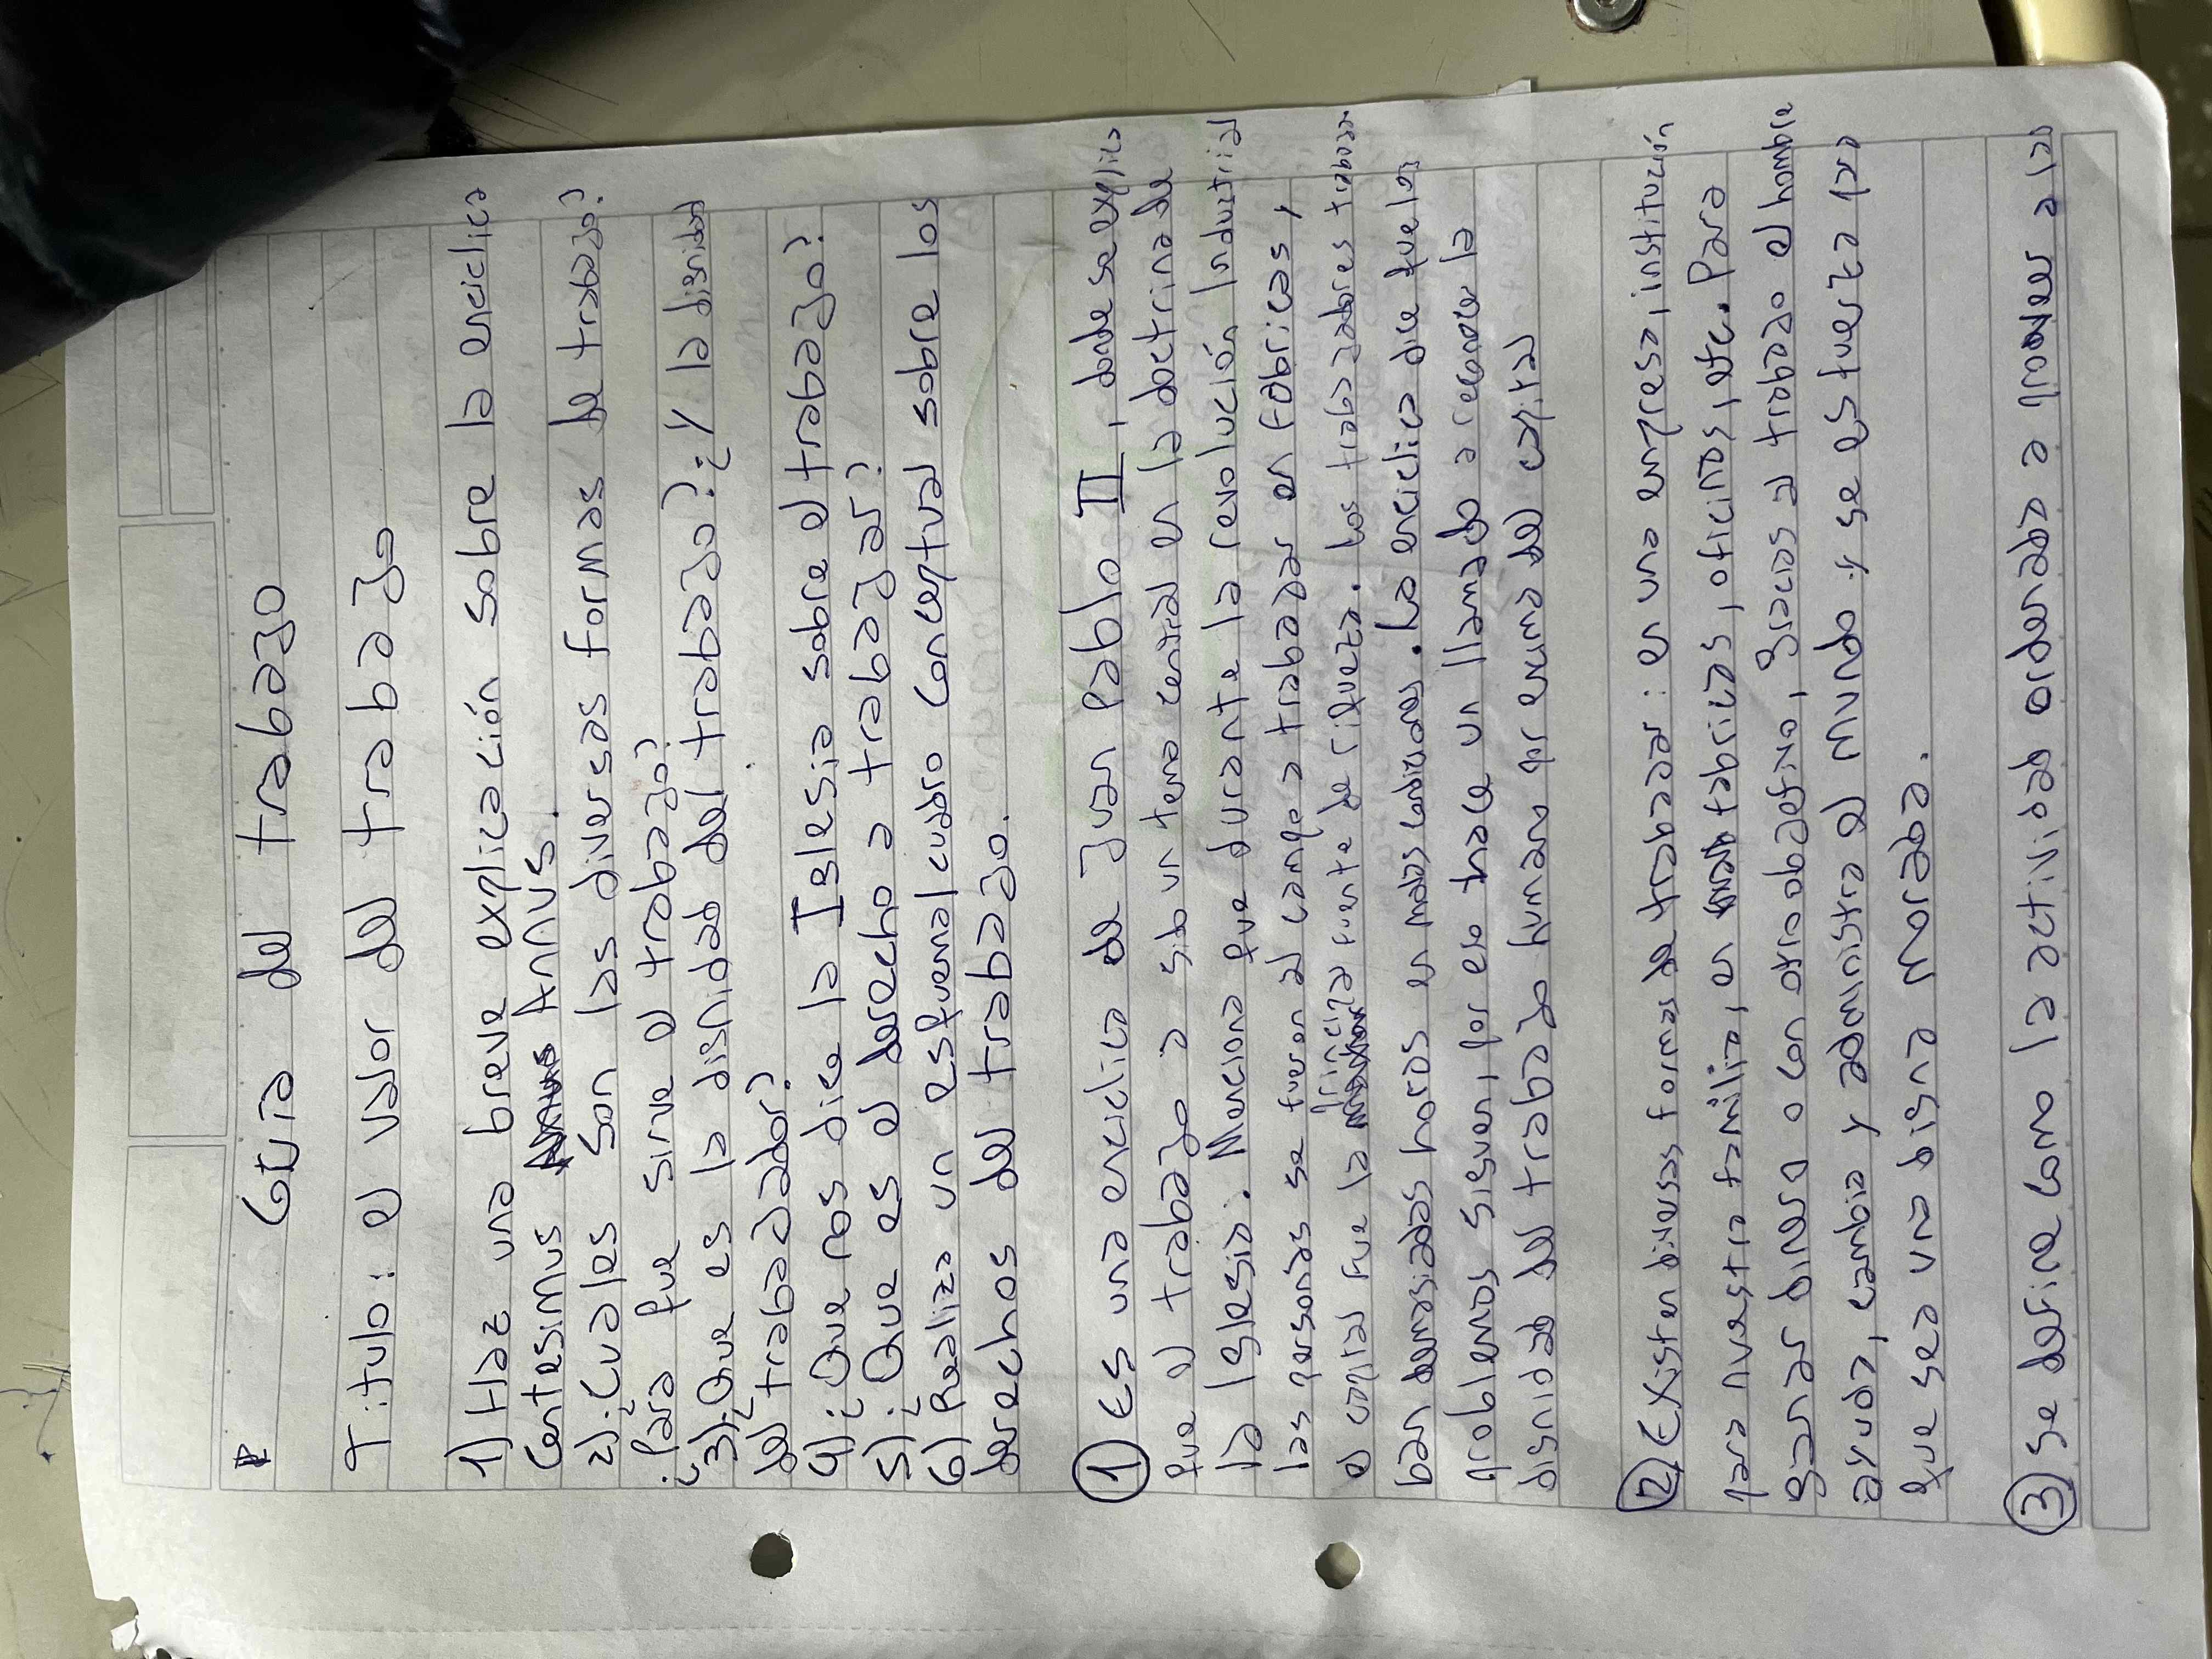 Guia del trabajo
Titulo: el valor del trabajo
1) Haz una breve explicación sobre la enciclica
Centesimus Annus.
2) ¿Cuales son las diversas formas de trabajo?
¿Para que sirve el trabajo?
3) ¿Que es la dignidad del trabajo? ¿Y la dignidad
del trabajador?
4) ¿Que nos dice la Iglesia sobre el trabajo?
5) ¿Que es el derecho a trabajar?
6) Realiza un esquema/cuadro conceptual sobre los
derechos del trabajo.
1) Es una enciclica de Juan Pablo II, donde se explica
que el trabajo a sido un tema central en la doctrina de
la Iglesia. Menciona que durante la revolución Industrial
las personas se fueron al campo a trabajar en fábricas y
el capital fue la principa fuente de riqueza. Los trabajadores trabaja-
ban demasiadas horas en malas condiciones. La enciclica dice que los
problemas siguen, por eso hace un llamado a reconocer la
dignidad del trabajo humano por encima del capital
2) Existen diversas formas de trabajar: en una empresa, institución
para nuestra familia, en fabricas, oficinas, etc. Para
ganar dinero o con otro objetivo, gracias al trabajo el hombre
ayuda, cambia y administra el mundo y se esfuerza por
que sea una digna morada.
3) Se define como la actividad ordenada a proveer a la